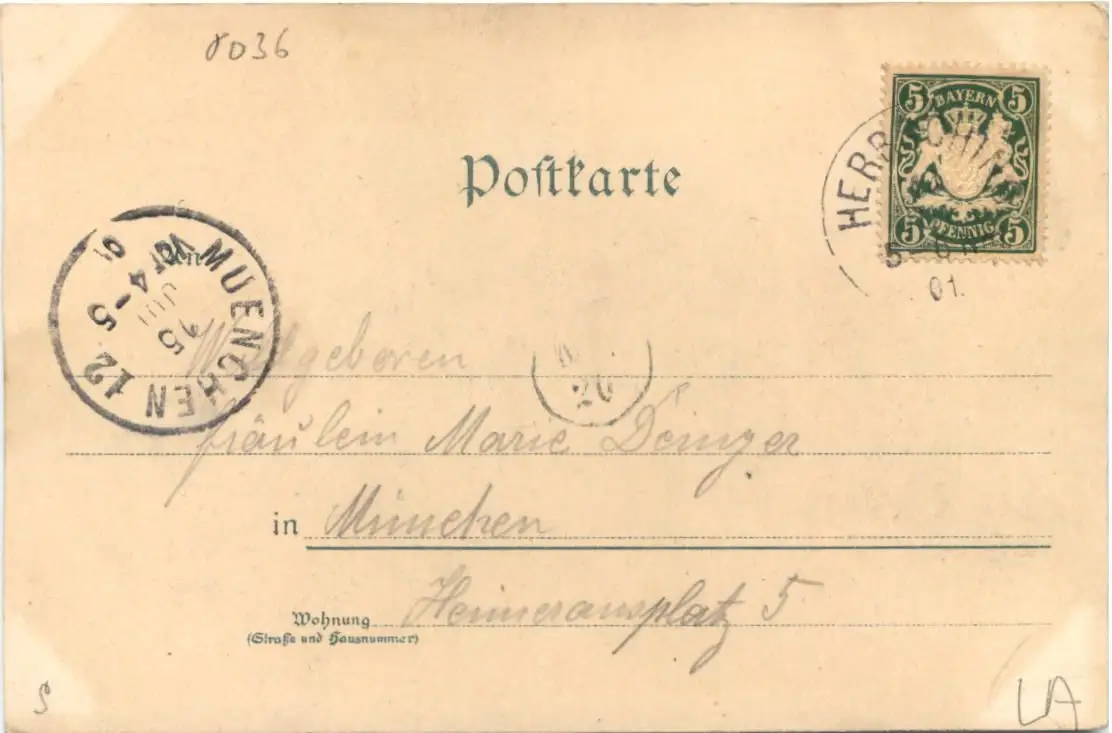 8036
5 BAYERN 5
5 PFENNIG 5
HERRSCHING
01.
Postkarte
An
MUENCHEN 12
15 JUN
VOR 4-5
01
20
Wohlgeboren
Fräulein Marie Deinger
in München
Heimeransplatz 5
Wohnung
(Straße und Hausnummer)
S
LA